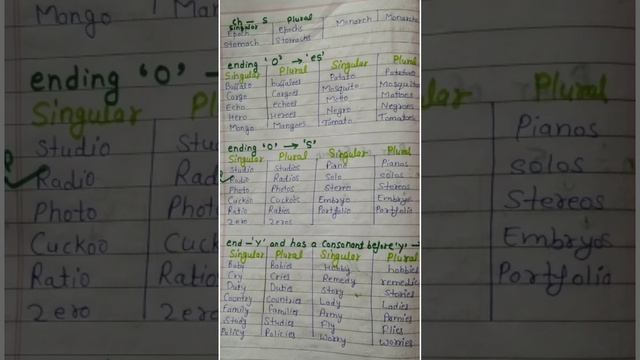 Mango Man
ending 'O' –
Singular Pl
Studio Stu
Radio Rad
Photo Phot
Cuckoo Cuck
Ratio Rati
Zero Zero
ch – s
Singular Plural
Epoch epochs Monarch Monarchs
Stomach Stomachs
ending 'O' → 'es'
Singular Plural Singular Plural
Buffalo buffaloes Potato Potatoes
Cargo Cargoes Mosquito Mosquitoes
Echo echoes Motto Mottoes
Hero Heroes Negro Negroes
Mango Mangoes Tomato Tomatoes
ending 'O' → 'S'
Singular Plural Singular Plural
Studio Studios Piano Pianos
Radio Radios Solo Solos
Photo Photos Stereo Stereos
Cuckoo Cuckoos Embryo Embryos
Ratio Ratios Portfolio Portfolio
Zero Zeros
end –'y' and has a Consonant before 'y' –
Singular Plural Singular Plural
Baby Babies Hobby hobbies
Cry Cries Remedy remedies
Duty Duties Story Stories
Country Countries Lady Ladies
Family Families Army Armies
Study Studies Fly Flies
Policy Policies Worry Worries
lar Plural
Pianos
Solos
Stereos
Embryos
Portfolio